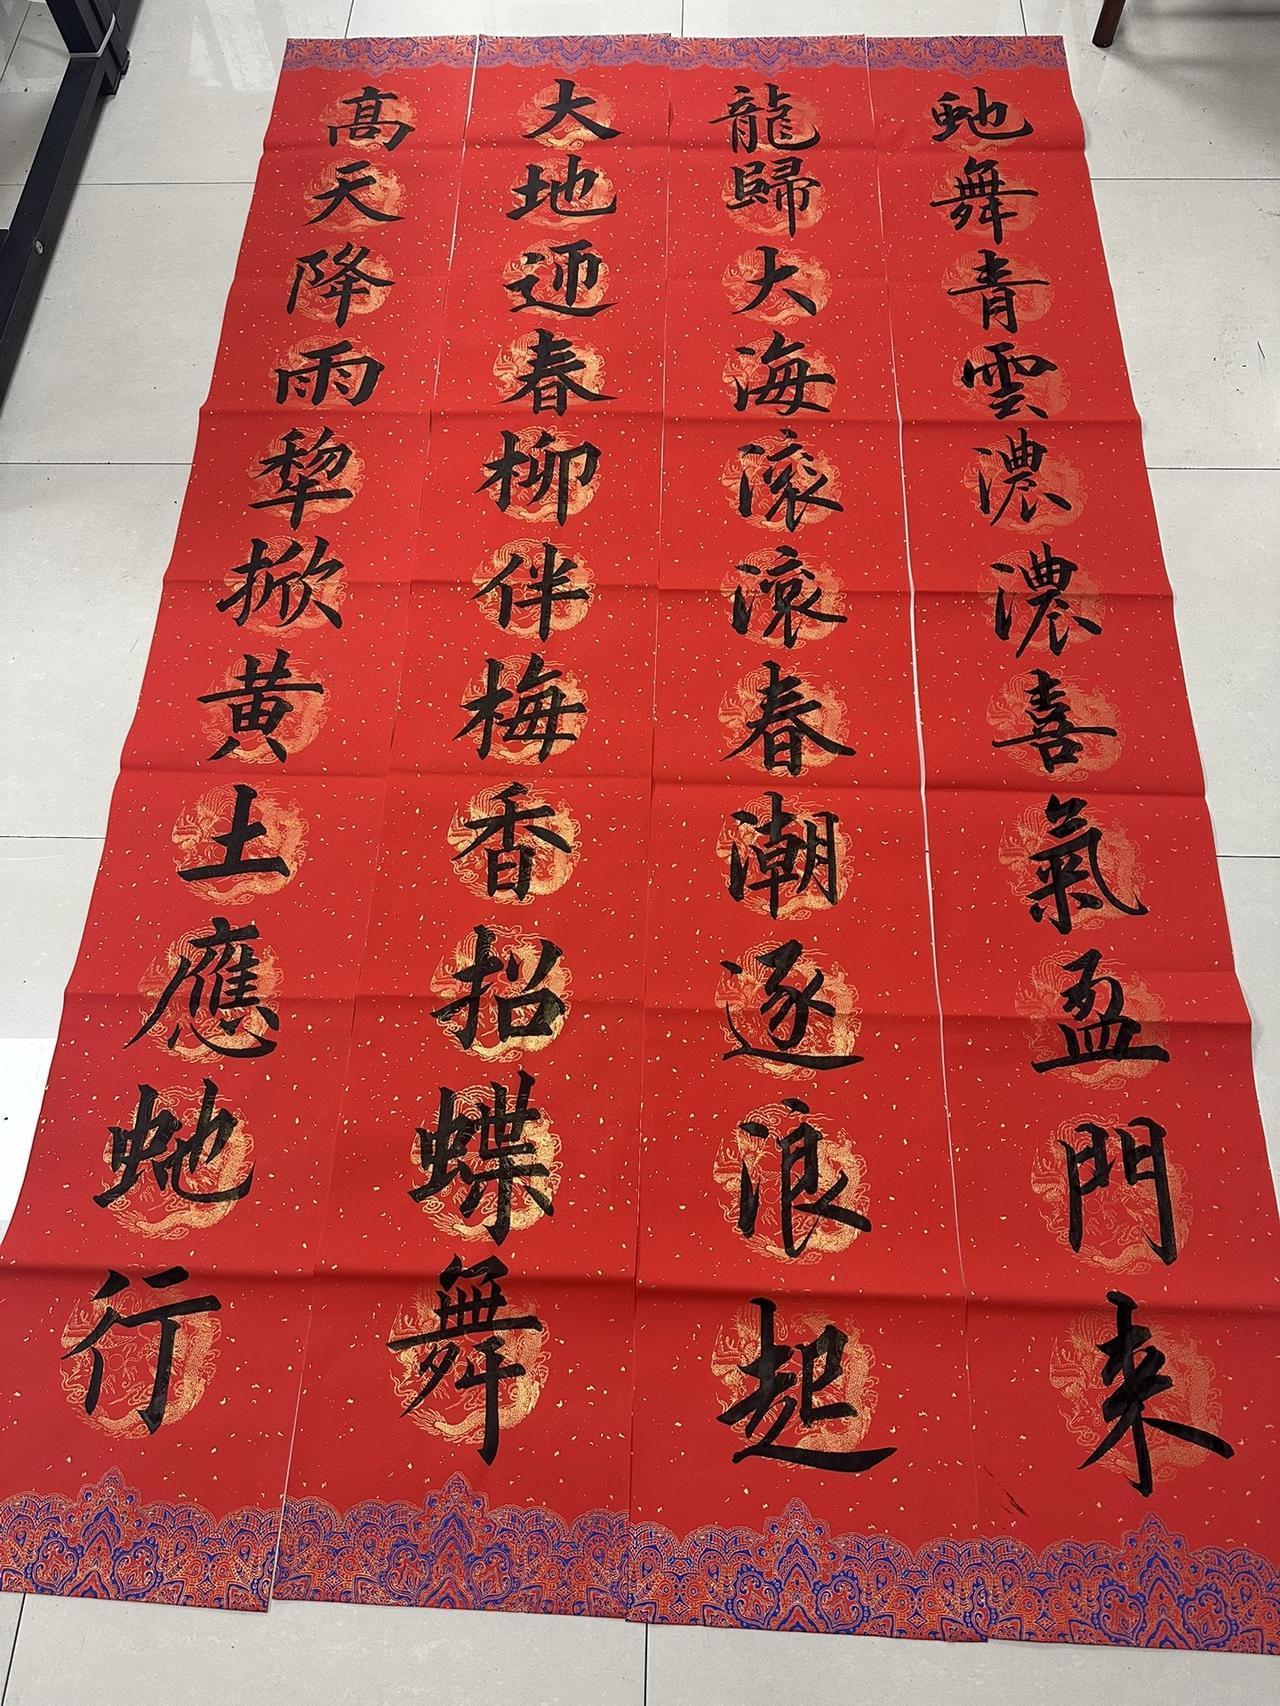 虵舞青雲濃濃喜氣盈門來
龍歸大海滚滚春潮逐浪起
大地迎春柳伴梅香招蝶舞
髙天降雨犂掀黄土應虵行